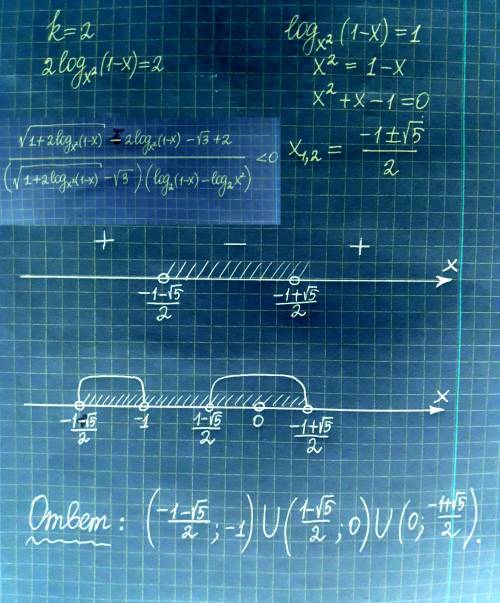 k=2
2log_{x²}(1-x)=2
log_{x²}(1-x)=1
x²=1-x
x²+x-1=0
x_{1,2} = (-1±√5)/2
(√(1+2log_{x²}(1-x)) - 2log_{x²}(1-x) - √3+2) / ((√(1+2log_{x²}(1-x)) - √3)·(log₂(1-x) - log₂x²)) <0
+ − + x
(-1-√5)/2 (-1+√5)/2
x
(-1-√5)/2 -1 (1-√5)/2 0 (-1+√5)/2
Ответ: ((-1-√5)/2; -1)∪((1-√5)/2; 0)∪(0; (-1+√5)/2).